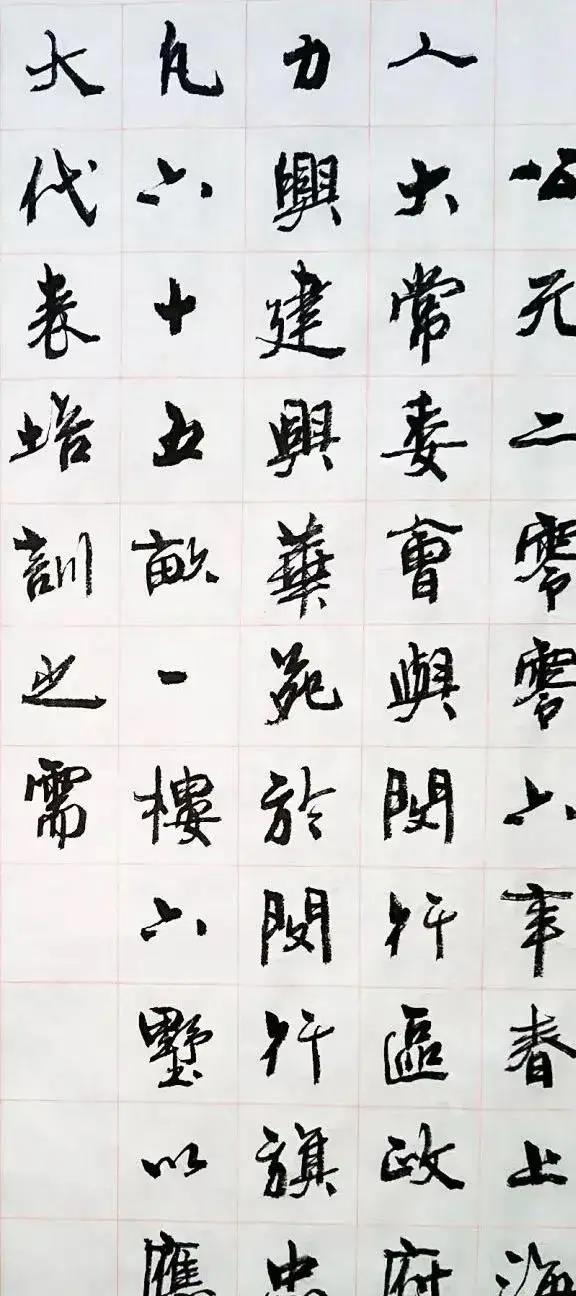 公元二零零六年春上海
人大常委會與閔行區政府
力興建興華苑於閔行旗忠
凡六十五畝一樓六墅以應
大代表培訓之需